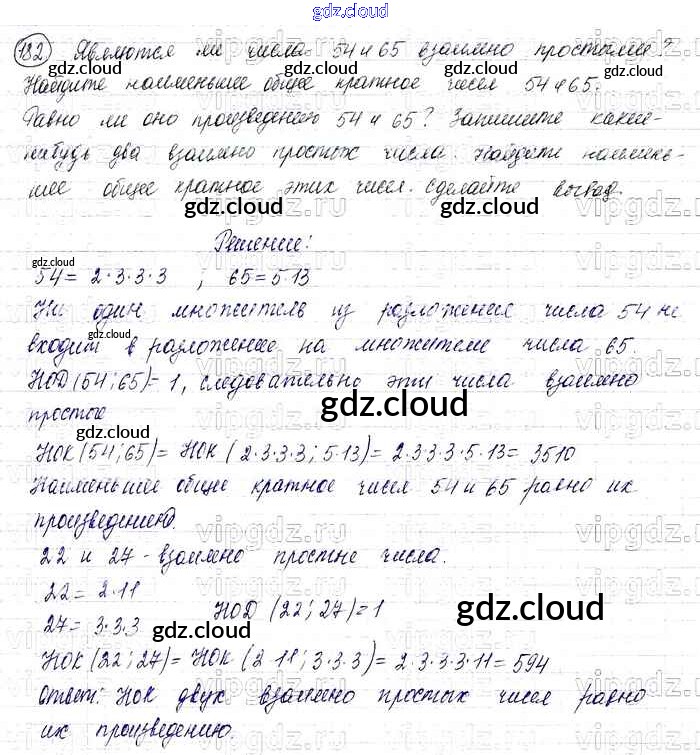 gdz.cloud
182 Являются ли числа 54 и 65 взаимно простыми?
Найдите наименьшее общее кратное чисел 54 и 65.
Равно ли оно произведению 54 и 65? Запишите какие-
нибудь два взаимно простых числа. Найдите наимень-
шее общее кратное этих чисел. Сделайте вывод.
gdz.cloud gdz.cloud
Решение:
gdz.cloud
54 = 2·3·3·3 ; 65 = 5·13
Ни один множитель из разложения числа 54 не
gdz.cloud
входит в разложение на множители числа 65.
НОД (54; 65) = 1, следовательно эти числа взаимно
простые
gdz.cloud
gdz.cloud
НОК (54; 65) = НОК (2·3·3·3; 5·13) = 2·3·3·3·5·13 = 3510
Наименьшее общее кратное чисел 54 и 65 равно их
произведению.
22 и 27 - взаимно простые числа.
22 = 2·11
27 = 3·3·3 НОД (22; 27) = 1
gdz.cloud
gdz.cloud
НОК (22; 27) = НОК (2·11; 3·3·3) = 2·3·3·3·11 = 594
Ответ: НОК двух взаимно простых чисел равно
их произведению.
vipgdz.ru